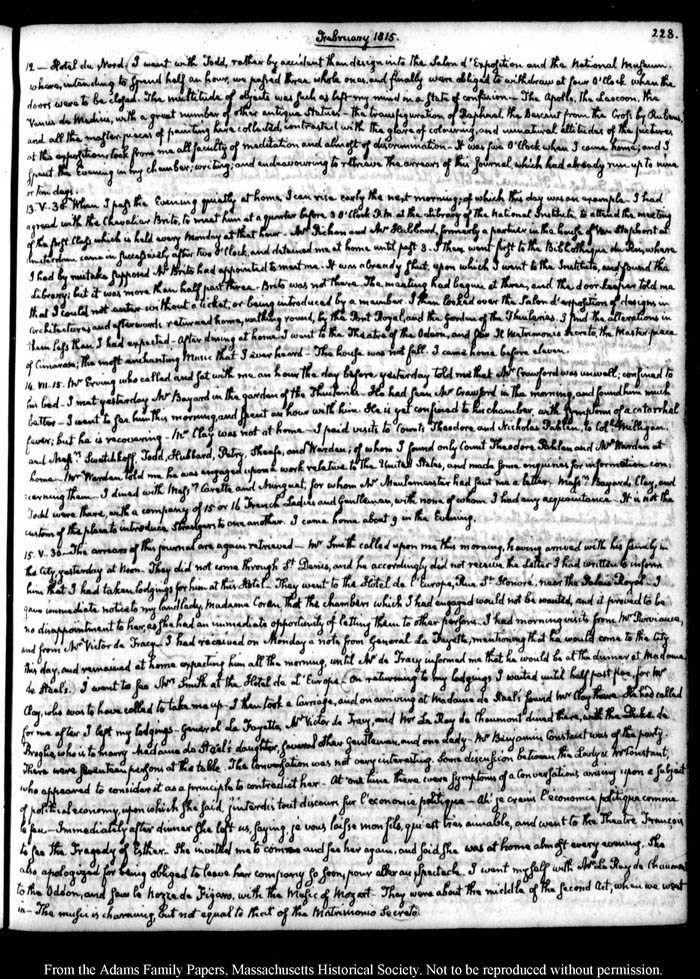 February 1815.
223.
12 — Hotel du Nord. I went with Todd, rather by accident than design into the Salon d'Exposition and the National Museum,
where, intending to spend half an hour, we passed three whole ones, and finally were obliged to withdraw at four O'Clock when the
doors were to be closed. The multitude of objects was such as left my mind in a State of confusion — The Apollo, the Laocoon, the
Venus de Medicis, with a great number of other antique Statues — the transfiguration of Raphael, the Descent from the Cross by Rubens,
and all the master pieces of painting here collected, contrasted with the glare of colouring, and unnatural attitudes of the pictures
at the exposition, took from me all faculty of meditation and almost of discrimination. It was five O'Clock when I came home; and I
spent the Evening in my chamber; writing; and endeavouring to retrieve the arrears of this Journal, which had already run up to nine
or ten days.
13. V. 30. When I pass the Evening quietly at home, I can rise early the next morning; of which this day was an example. I had
agreed with the Chevalier Brito, to meet him at a quarter before 3 O'Clock P.M. at the Library of the National Institute, to attend the meeting
of the first Class which is held every Monday at that hour. Mr. Pichon and Mr. Hubbard, formerly a partner in the house of Van Staphorst at
Amsterdam came in successively after two O'Clock, and detained me at home until past 3. I then went first to the Bibliotheque du Roi, where
I had by mistake supposed Mr. Brito had appointed to meet me. It was already shut, upon which I went to the Institute, and found the
Library; but it was more than half past three. Brito was not there. The meeting had begun at three, and the door-keeper told me
that I could not enter without a ticket, or being introduced by a member. I then looked over the Salon d'exposition of designs in
architecture; and afterwards returned home, walking round, by the Pont Royal, and the garden of the Thuileries. I find the alterations in
them less than I had expected. After dining at home I went to the Theatre of the Odeon, and saw Il Matrimonio Secreto, the Master piece
of Cimarosa; the most enchanting Music that I ever heard — The house was not full. I came home before eleven.
14. VII. 15. Mr. Erving who called and sat with me an hour the day before yesterday told me that Mr. Crawford was unwell; confined to
his bed. I met yesterday Mr. Bayard in the garden of the Thuileries. He had seen Mr. Crawford in the morning, and found him much
better — I went to see him this morning, and spent an hour with him. He is yet confined to his chamber, with symptoms of a catarrhal
fever; but he is recovering. Mr. Clay was not at home — I paid visits to Counts Theodore and Nicholas Pahlen, to Coll. Milligan,
and Messrs. Svetchkoff, Todd, Hubbard, Petry, Sheafe, and Warden; of whom I found only Count Theodore Pahlen and Mr. Warden at
home. Mr. Warden told me he was engaged upon a work relative to the United States, and made some enquiries for information con:
cerning them. I dined with Messrs. and Minguet, for whom Mr. Meulemeester had sent me a letter. Messrs. Bayard, Clay, and
Todd were there, with a company of 15 or 16 French Ladies and Gentlemen, with none of whom I had any acquaintance. It is not the
custom of the place to introduce Strangers to one another. I came home about 9 in the Evening.
15. V. 30. The arrears of this journal are again retrieved — Mr. Smith called upon me this morning, having arrived with his family in
the City, yesterday at Noon. They did not come through St. Denis, and he accordingly did not receive the Letter I had written to inform
him that I had taken lodgings for him at this Hotel. They went to the Hotel de l'Europe, Rue St. Honoré, near the Palais Royal. I
gave immediate notice to my landlady, Madame Corea, that the chambers which I had engaged would not be wanted, and it proved to be
no disappointment to her, as she had an immediate opportunity of letting them to other persons. I had morning visits from Mr. Purviance,
and from Mr. Victor de Tracy. I had received on Monday a note from General La Fayette, mentioning that he would come to the City
this day, and remained at home expecting him all the morning, until Mr. de Tracy informed me that he would be at the dinner at Madame
de Stael's. I went to see Mrs. Smith at the Hotel de l'Europe. On returning to my lodgings I waited until half past five, for Mr.
Clay, who was to have called to take me up. I then took a Carriage, and on arriving at Madame de Stael's found Mr. Clay there. He had called
for me after I left my lodgings. General La Fayette, Mr. Victor de Tracy, and Mr. Le Ray de Chaumont dined there, with the Duke de
Broglie, who is to marry Madame de Stael's daughter, several other Gentlemen, and one lady. Mr. Benjamin Constant was of the party.
There were seventeen persons at the table. The Conversation was not very interesting. Some discussion between the Lady & Mr. Constant,
who appeared to consider it as a principle to contradict her. At one time there were symptoms of a Conversation arising upon a subject
of political economy, upon which she said, j'interdis tout discours sur l'economie politique — Ah! je crains l'economie politique comme
le feu — Immediately after dinner she left us, saying, je vous laisse mon fils, qui est tres aimable, and went to the Theatre Francois
to see the Tragedy of Esther. She invited me to come and see her again, and said she was at home almost every evening. She
also apologized for being obliged to leave her company so soon, pour aller au Spectacle. I went myself with Mr. Le Ray de Chaumont
to the Odeon, and saw le Nozze de Figaro, with the Music of Mozart. They were about the middle of the second Act, when we went
in — The music is charming, but not equal to that of the Matrimonio Secreto.
From the Adams Family Papers, Massachusetts Historical Society. Not to be reproduced without permission.